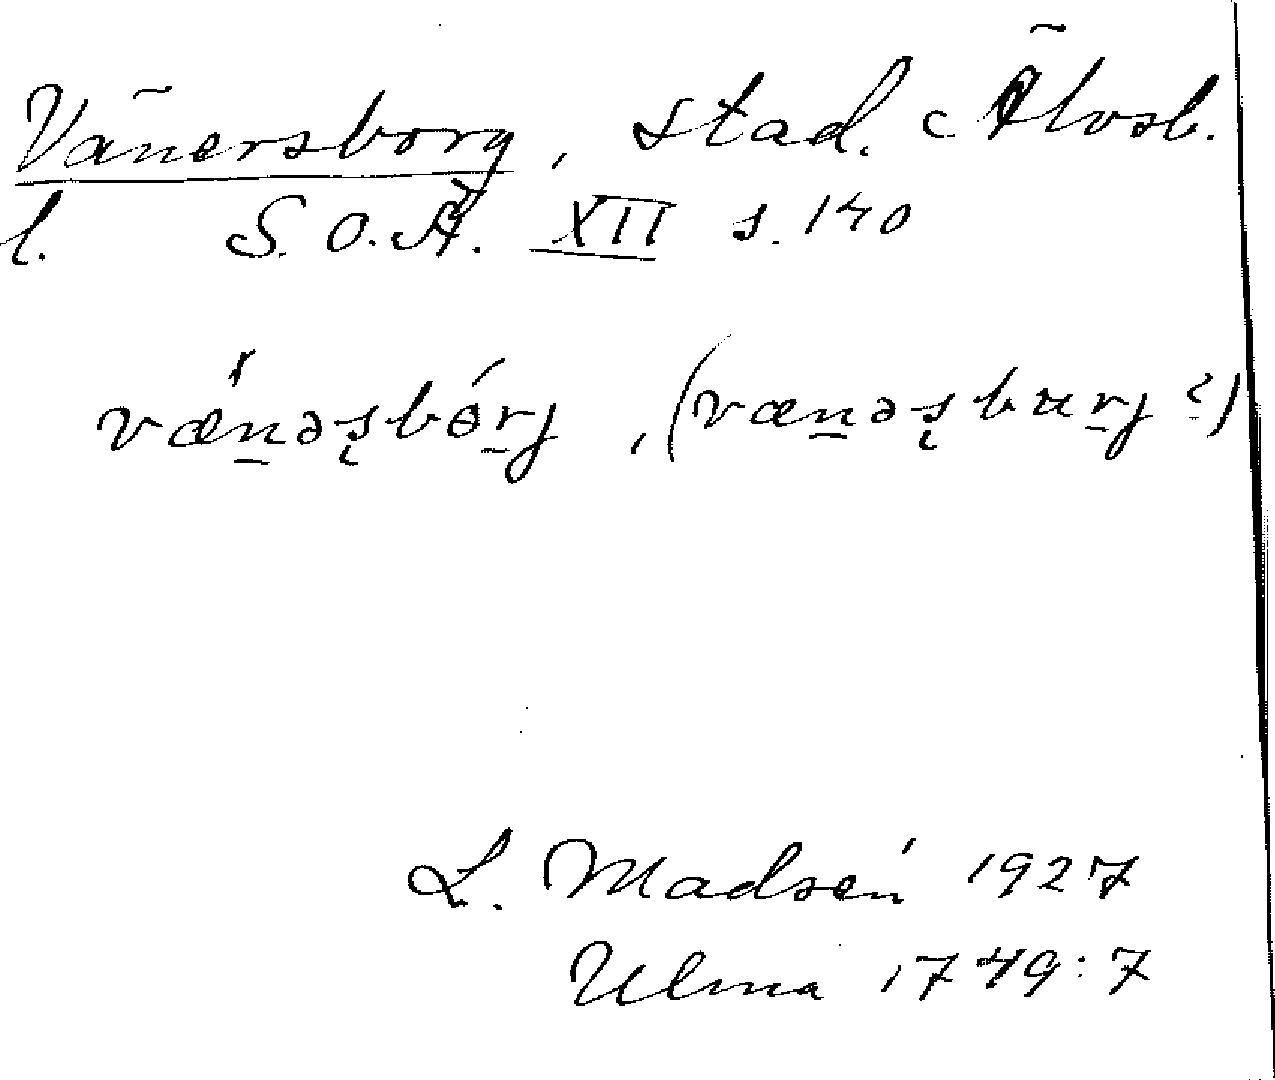 Vänersborg, stad. Älvsb.
l. S.O.Ä. XII s. 140
væ̌n̠əʂbór̠j, (væn̠əʂbur̠j ?)
L. Madsén 1927
Ulma 1749:7